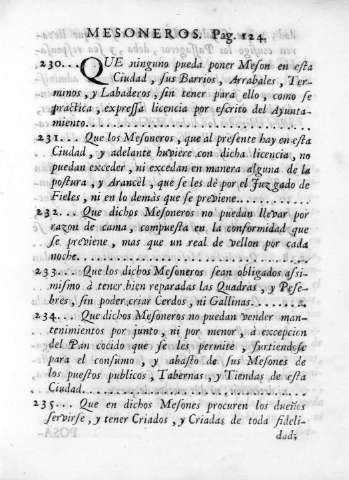 MESONEROS. Pag. 124.
230... QUE ninguno pueda poner Meson en esta
Ciudad, sus Barrios, Arrabales, Ter-
minos, y Labaderos, sin tener para ello, como se
practica, expressa licencia por escrito del Ayunta-
miento.......................
231... Que los Mesoneros, que al presente hay en esta
Ciudad, y adelante huviere con dicha licencia, no
puedan exceder, ni excedan en manera alguna de la
postura, y Arancèl, que se les dè por el Juzgado de
Fieles, ni en lo demàs que se previene..
232... Que dichos Mesoneros no puedan llevar por
razon de cama, compuesta en la conformidad que
se previene, mas que un real de vellon por cada
noche.......................
233... Que los dichos Mesoneros sean obligados assi-
mismo à tener bien reparadas las Quadras, y Pese-
bres, sin poder criar Cerdos, ni Gallinas........
234... Que dichos Mesoneros no puedan vender man-
tenimientos por junto, ni por menor, à excepcion
del Pan cocido que se les permite, surtiendose
para el consumo, y abasto de sus Mesones de
los puestos publicos, Tabernas, y Tiendas de esta
Ciudad.......................
235... Que en dichos Mesones procuren los dueños
servirse, y tener Criados, y Criadas de toda fideli-
dad;